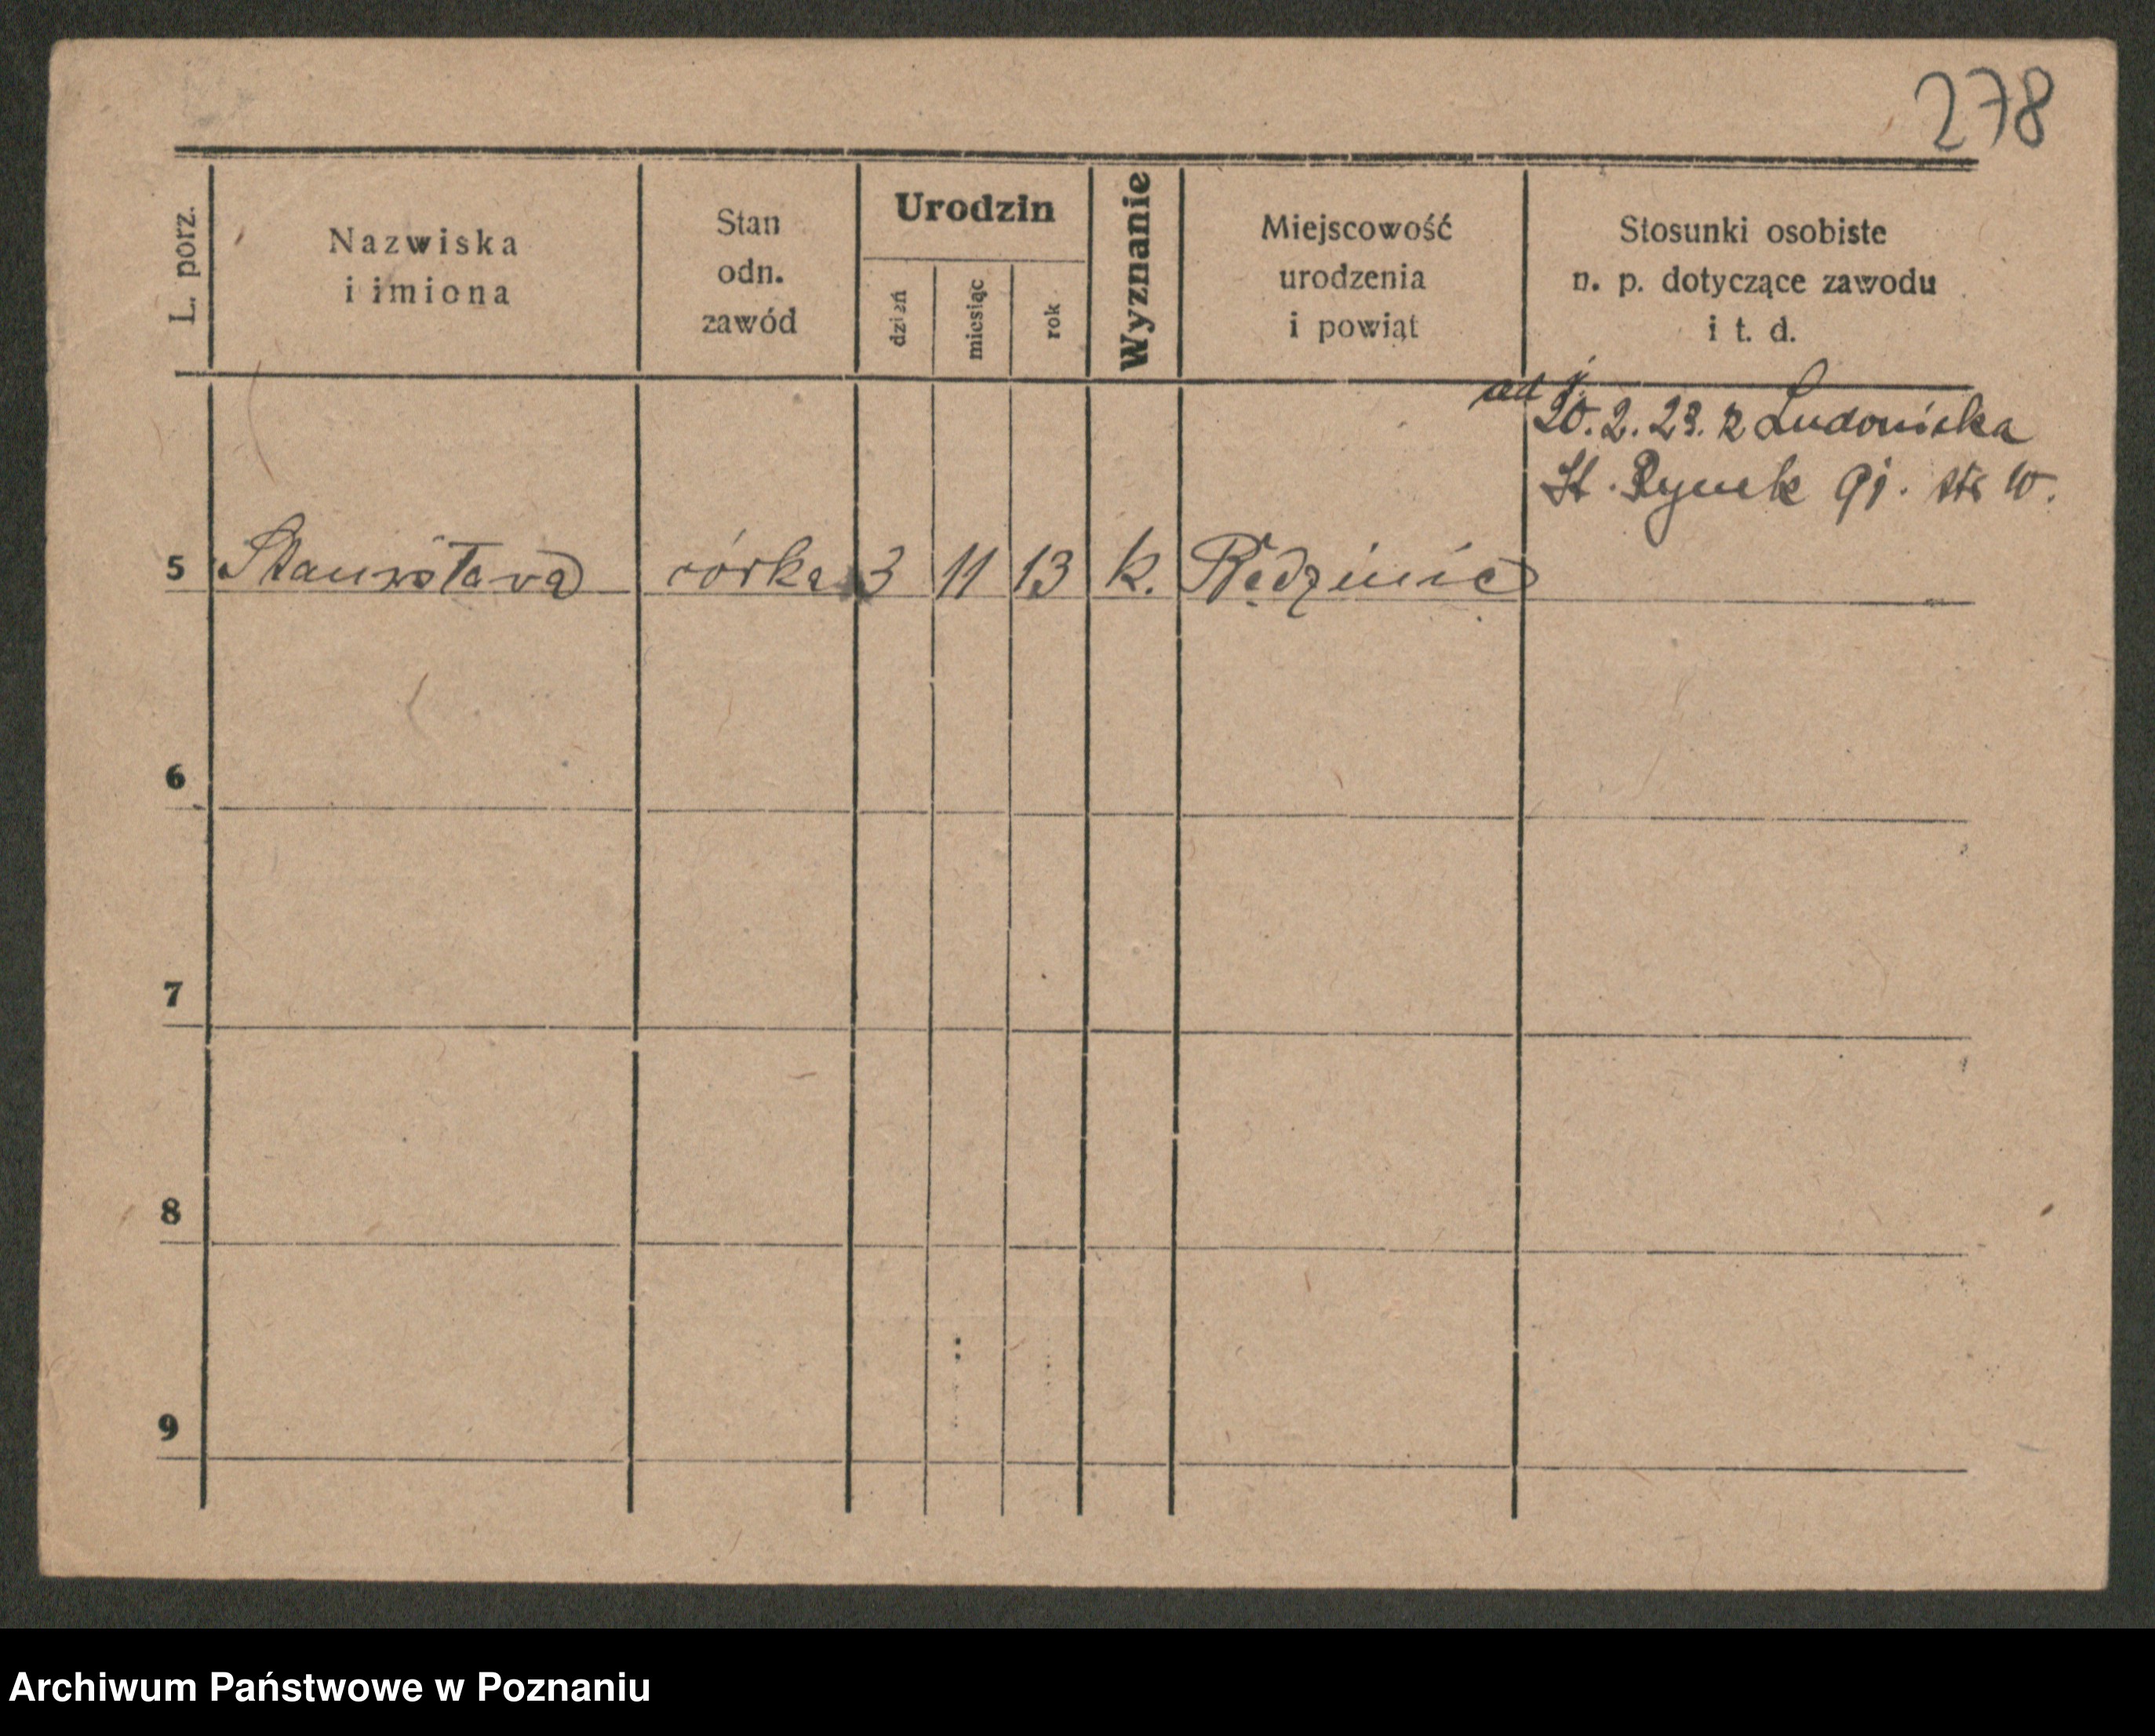 278
L. porz.
Nazwiska
i imiona
Stan
odn.
zawód
Urodzin
dzień
miesiąc
rok
Wyznanie
Miejscowość
urodzenia
i powiąt
Stosunki osobiste
n. p. dotyczące zawodu
i t. d.
od
20.2.23. z Ludoniska
St. Rynek 91.
5 Stanisława córka 3 11 13 k. Rędzinie
6
7
8
9
Archiwum Państwowe w Poznaniu